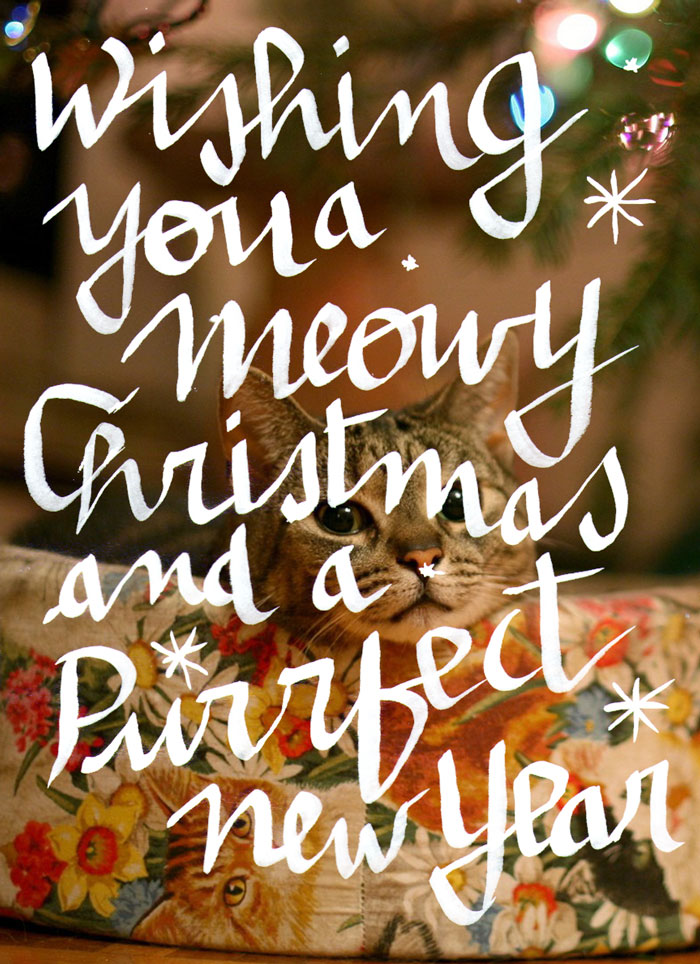 Wishing
you a
meowy
Christmas
and a
Purrfect
new year